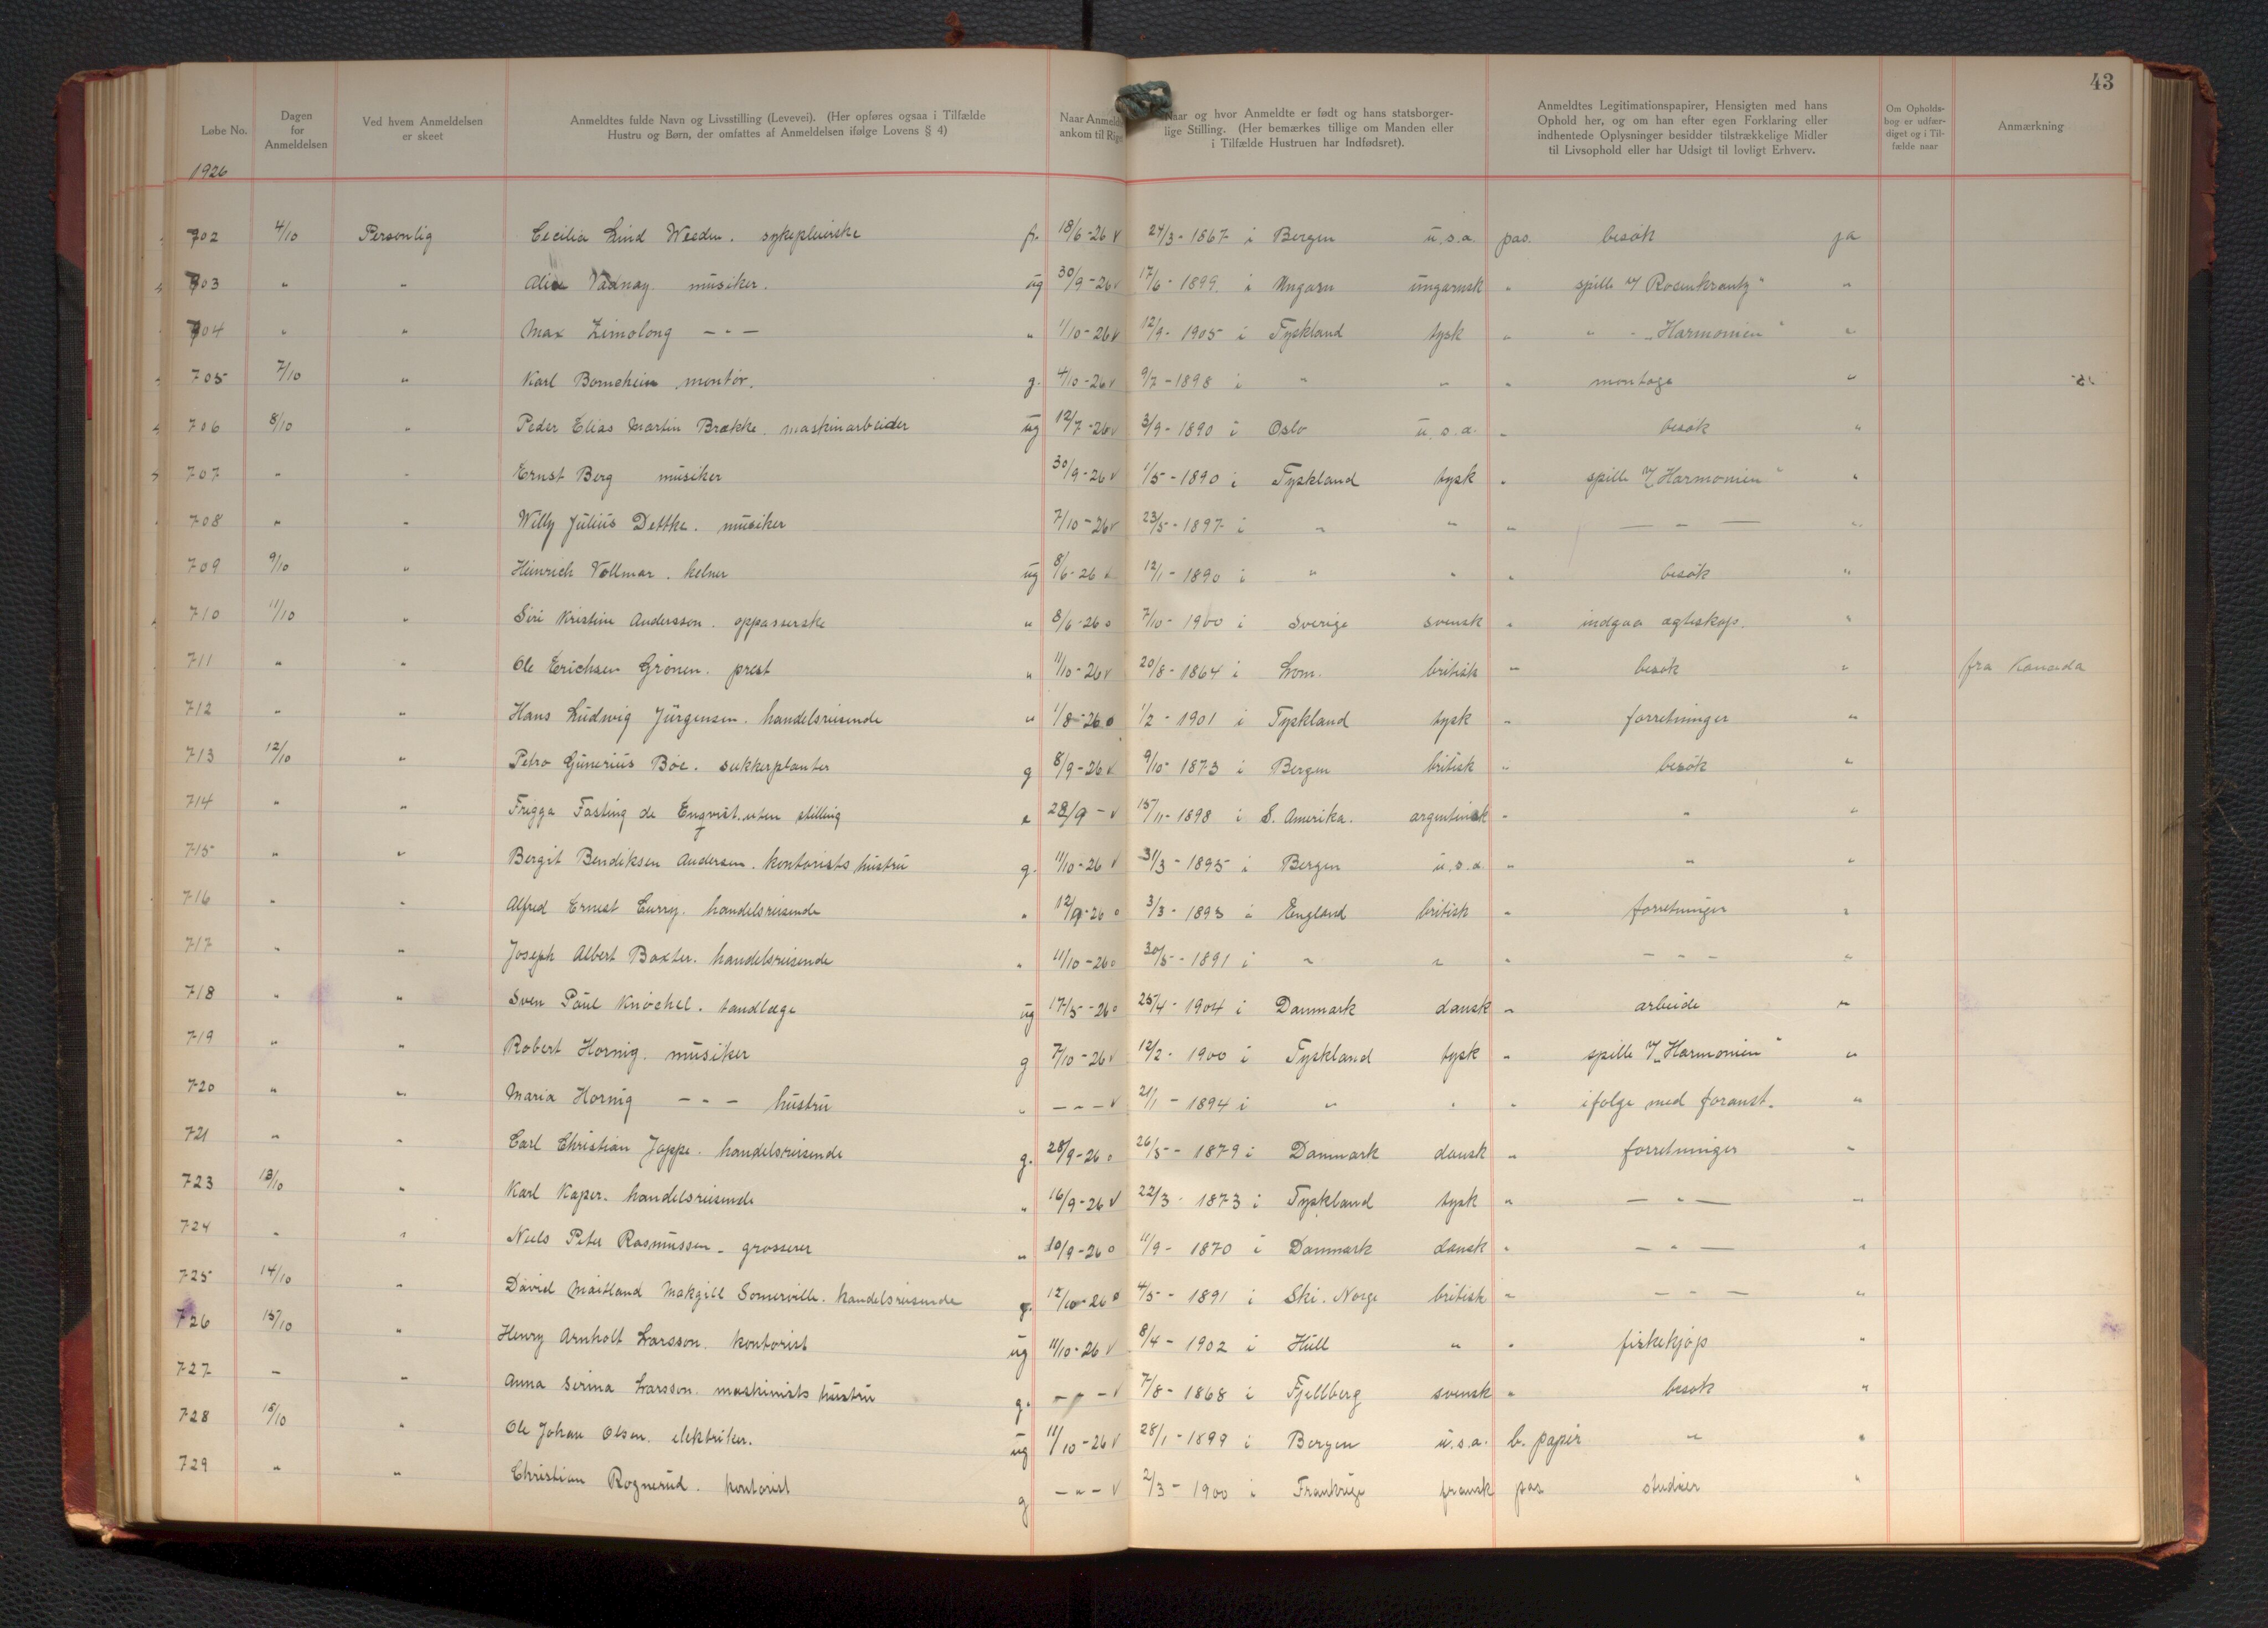 43
Løbe No.
Dagen for Anmeldelsen
Ved hvem Anmeldelsen er skeet
Anmeldtes fulde Navn og Livsstilling (Levevei). (Her opføres ogsaa i Tilfælde Hustru og Børn, der omfattes af Anmeldelsen ifølge Lovens § 4)
Naar Anmeld ankom til Rig
Naar og hvor Anmeldte er født og hans statsborgerlige Stilling. (Her bemærkes tillige om Manden eller i Tilfælde Hustruen har Indfødsret).
Anmeldtes Legitimationspapirer, Hensigten med hans Ophold her, og om han efter egen Forklaring eller indhentede Oplysninger besidder tilstrækkelige Midler til Livsophold eller har Udsigt til lovligt Erhverv.
Om Opholdsbog er udfærdiget og i Tilfælde naar
Anmærkning
1926
702 4/10 Personlig Cecilia Lind Weedn. sykepleierske fr. 18/6-26 v 24/3-1867 i Bergen u.s.a. pas. besøk ja
703 " " Alice Vadnay musiker. ug 30/9-26 v 17/6-1899 i Ungarn ungarsk " spille v/ Rosenkrantz" "
704 " " Max Zimolong - " - " 1/10-26 v 12/9-1905 i Tyskland tysk " " - "Harmonien" "
705 7/10 " Karl Borncheim montør. g. 4/10-26 v 9/7-1898 i " " " montage " 15.
706 8/10 " Peder Elias Martin Brække. maskinarbeider ug 12/7-26 v 3/9-1890 i Oslo u.s.a. " besøk "
707 " " Ernst Berg musiker 30/9-26 v 1/5-1890 i Tyskland tysk " spille v/ "Harmonien" "
708 " " Willy Julius Dettke. musiker 7/10-26 v 23/5-1897 i " " " - " - "
709 9/10 " Heinrich Vollmar. kelner ug 8/6-26 12/1-1890 i " " " besøk "
710 11/10 " Siri Kristine Andersson. oppasserske " 8/6-26 o 7/10-1900 i Sverige svensk " indgaa egteskap. "
711 " " Ole Erichsen Grønen. prest " 11/10-26 v 20/8-1864 i Lom. britisk " besøk " fra Kanada
712 " " Hans Ludwig Jürgensen. handelsreisende " 1/8-26 o 1/2-1901 i Tyskland tysk " forretninger "
713 12/10 " Petro Gunerius Bøe. sukkerplanter g 8/9-26 v 9/10-1873 i Bergen britisk " besøk "
714 " " Frigga Fasting de Engvist. uten stilling e 28/9 - v 15/11-1898 i S. Amerika. argentinsk " " "
715 " " Bergit Bendiksen Andersen. kontorists hustru g. 11/10-26 v 31/3-1895 i Bergen u.s.a. " " "
716 " " Alfred Ernest Curry. handelsreisende " 12/9-26 o 3/3-1893 i England britisk " forretninger "
717 " " Joseph Albert Baxter. handelsreisende " 11/10-26 o 30/5-1891 i " " " - " - "
718 " " Sven Paul Knöchel. tandlæge ug 17/5-26 o 25/4-1904 i Danmark dansk " arbeide "
719 " " Robert Hornig. musiker g 7/10-26 v 12/2-1900 i Tyskland tysk " spille v/ "Harmonien" "
720 " " Maria Hornig - " - hustru " - " - v 21/1-1894 i " " " ifølge med foranst. "
721 " " Carl Christian Jappe. handelsreisende g. 28/9-26 o 26/5-1879 i Danmark dansk " forretninger "
723 13/10 " Karl Kaper. handelsreisende " 16/9-26 v 22/3-1873 i Tyskland tysk " - " - "
724 " " Niels Peter Rasmussen - grosserer " 10/9-26 o 11/9-1870 i Danmark dansk " - " - "
725 14/10 " David Maitland Makgill Somerville. handelsreisende g. 12/10-26 o 4/5-1891 i Ski. Norge britisk " - " - "
726 15/10 " Henry Arnholt Larsson. kontorist ug 11/10-26 v 8/4-1902 i Hull " " fiskekjøp "
727 - " Anna Serina Larsson. maskinists hustru g. - " - v 7/8-1868 i Fjellberg svensk " besøk "
728 15/10 " Ole Johan Olsen. elektriker. ug 11/10-26 v 28/1-1899 i Bergen u.s.a. b. papir " "
729 " " Christian Rognerud. kontorist g - " - v 2/3-1900 i Frankrige fransk pas studier "